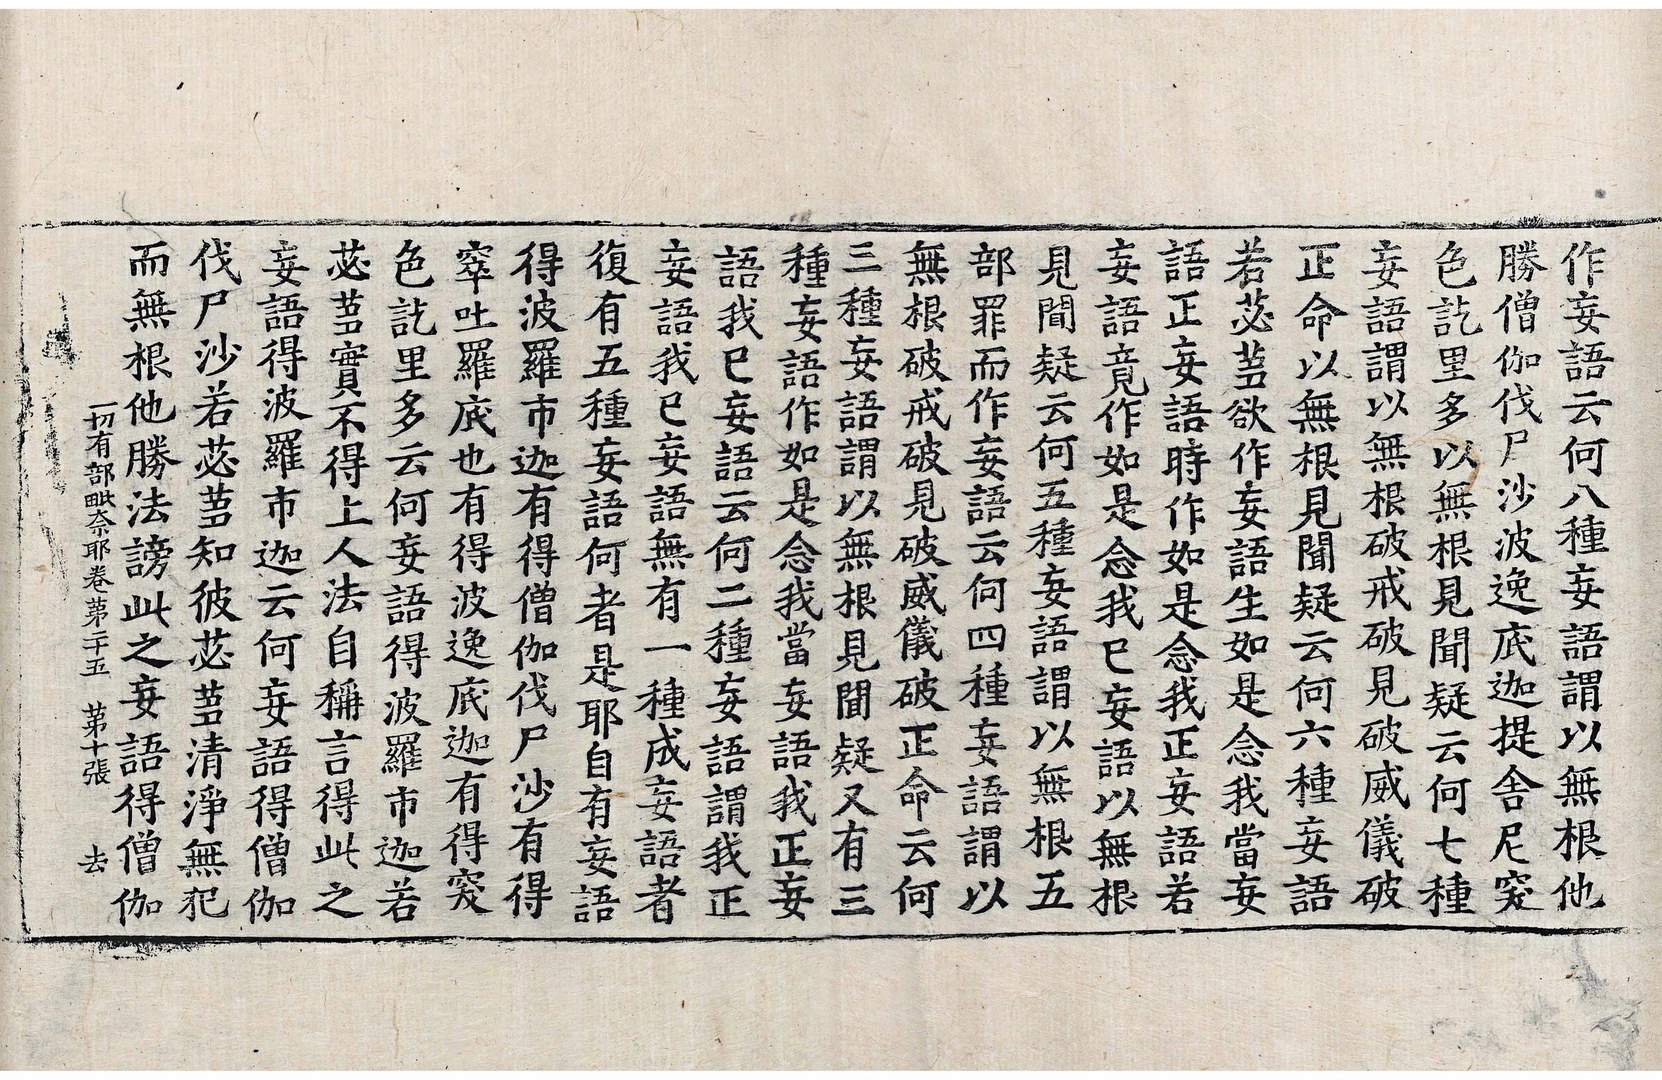 作妄語云何八種妄語謂以無根他
勝僧伽伐尸沙波逸底迦提舍尼窔
色訖里多以無根見聞疑云何七種
妄語謂以無根破戒破見破威儀破
正命以無根見聞疑云何六種妄語
若苾芻欲作妄語生如是念我當妄
語正妄語時作如是念我正妄語若
妄語竟作如是念我已妄語以無根
見聞疑云何五種妄語謂以無根五
部罪而作妄語云何四種妄語謂以
無根破戒破見破威儀破正命云何
三種妄語謂以無根見聞疑又有三
種妄語作如是念我當妄語我正妄
語我已妄語云何二種妄語謂我正
妄語我已妄語無有一種成妄語者
復有五種妄語何者是耶自有妄語
得波羅市迦有得僧伽伐尸沙有得
窣吐羅底也有得波逸底迦有得窔
色訖里多云何妄語得波羅市迦若
苾芻實不得上人法自稱言得此之
妄語得波羅市迦云何妄語得僧伽
伐尸沙若苾芻知彼苾芻清淨無犯
而無根他勝法謗此之妄語得僧伽
一切有部毗奈耶卷第二十五　第十張　去